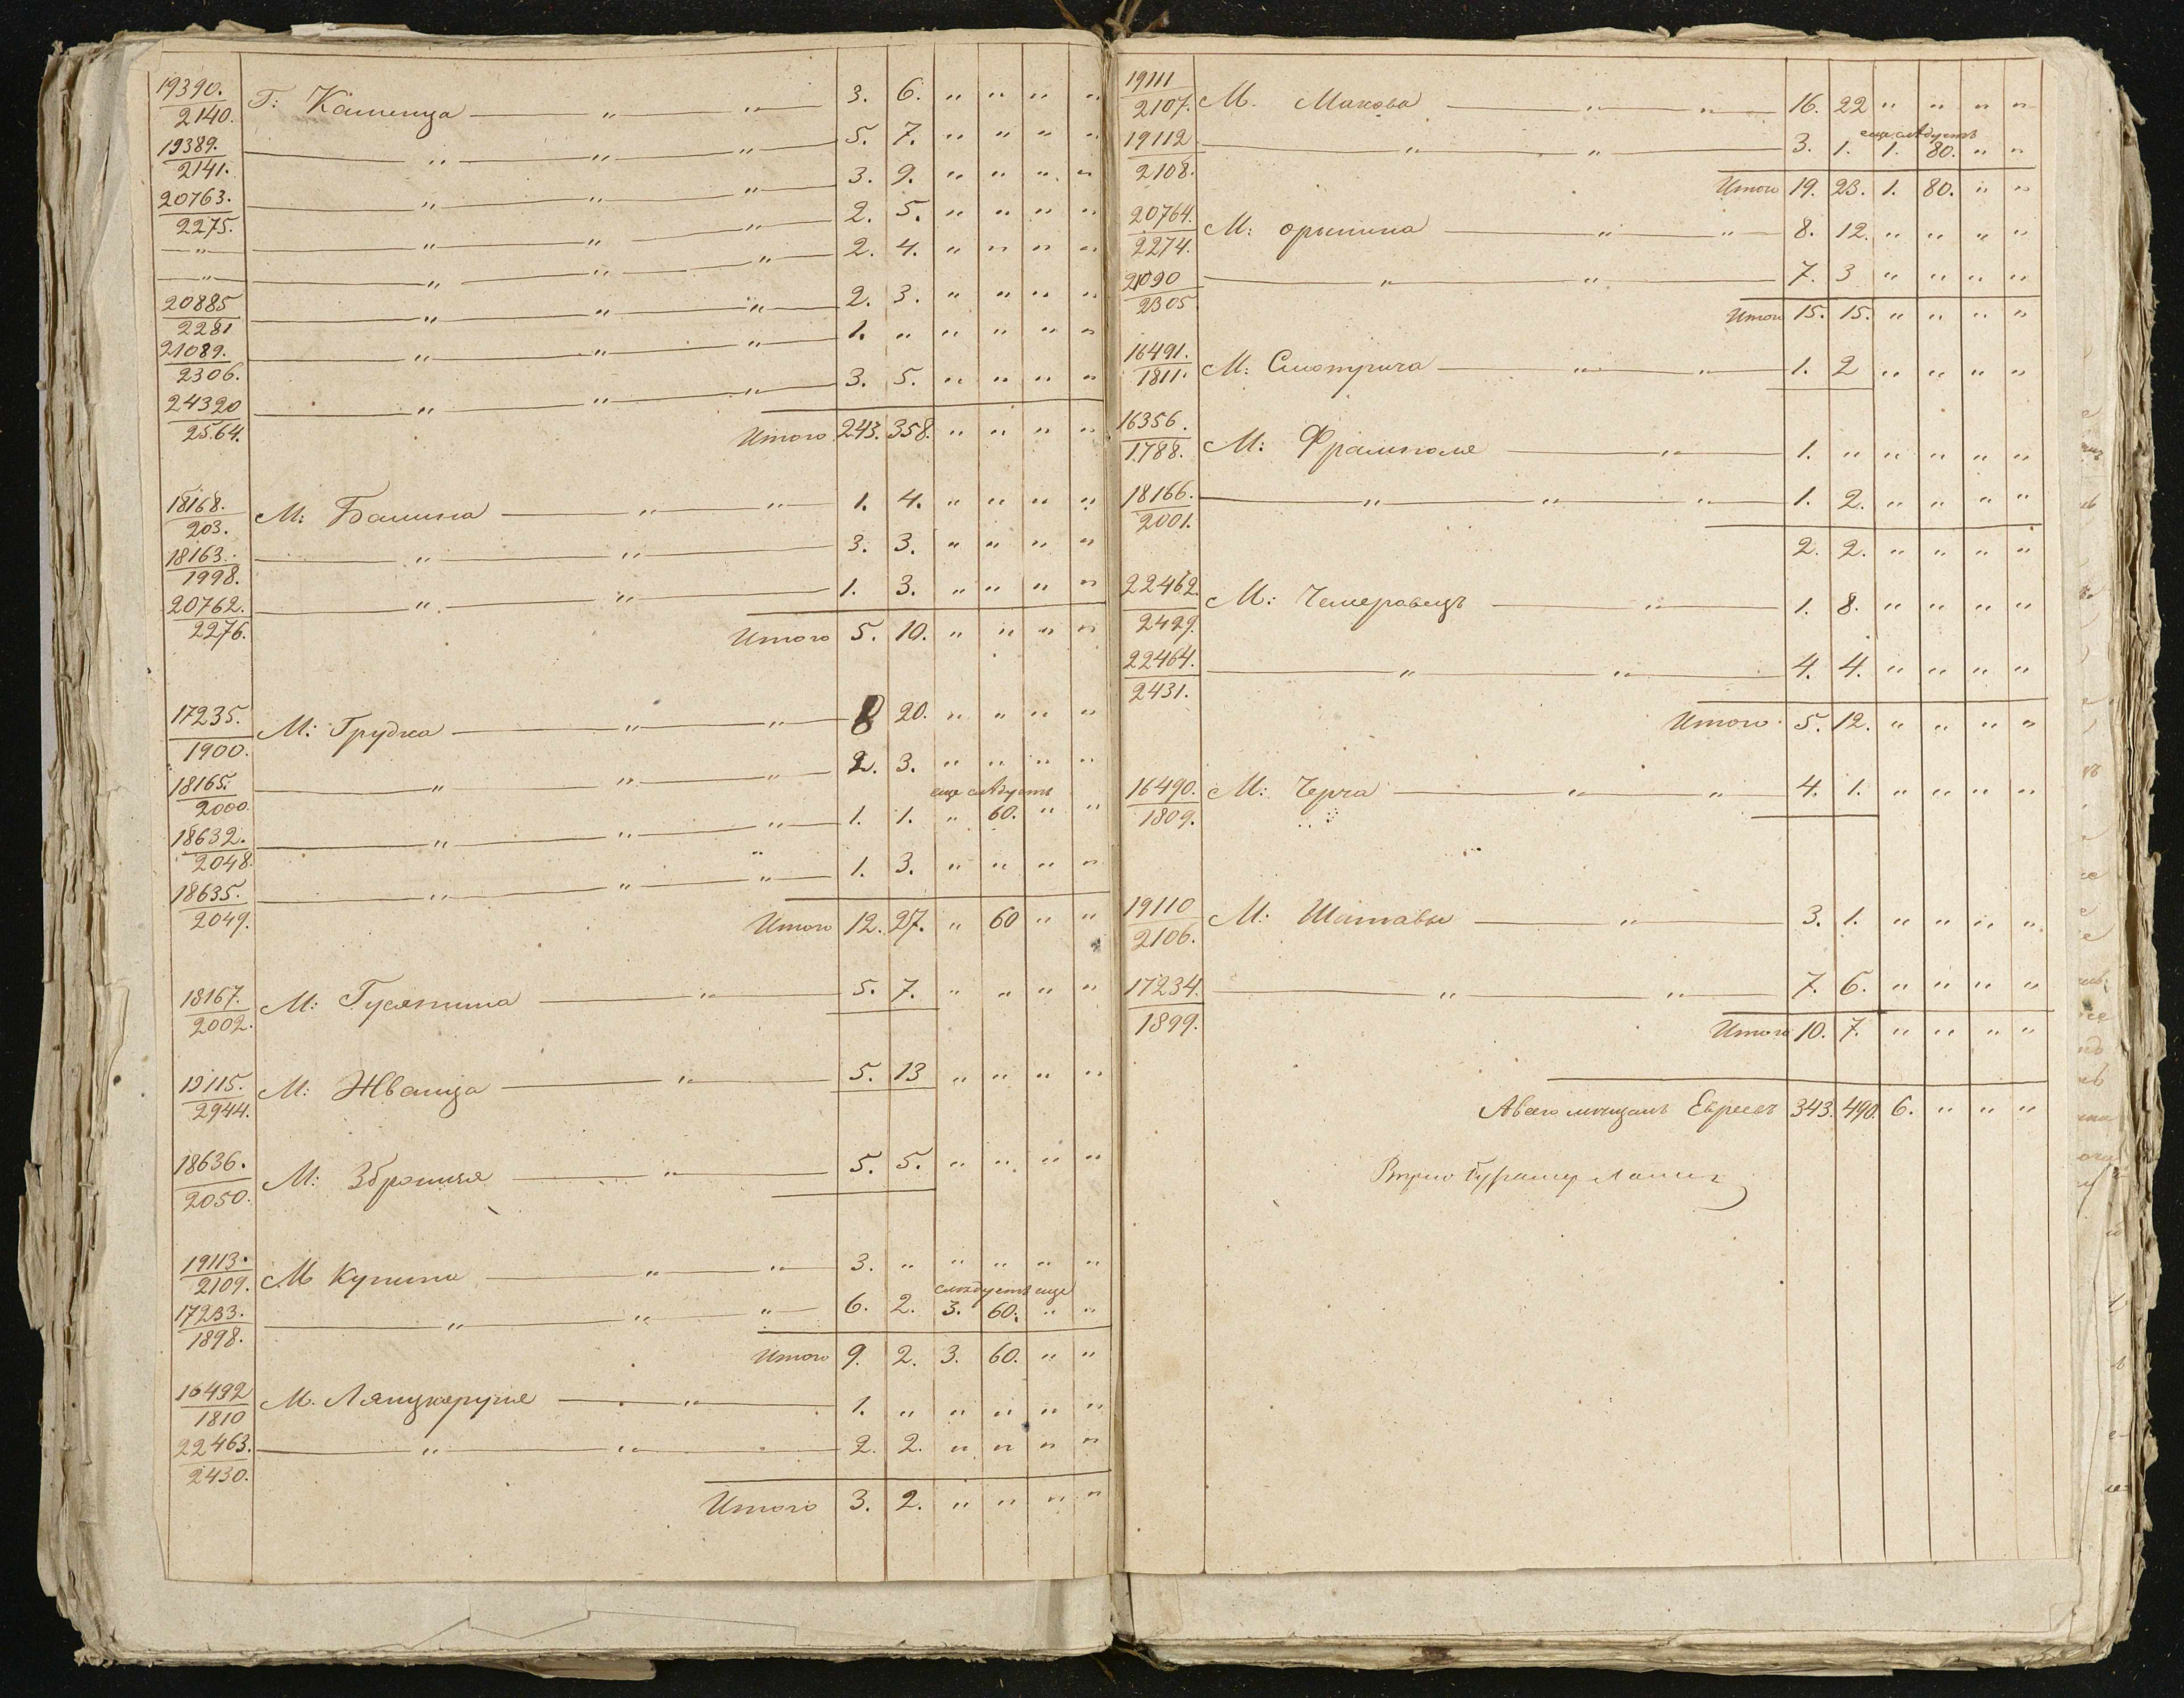 19390. Г: Каменца — „ — „ — 3. 6. „ „ „ „
2140.
19389. — „ — „ — „ — 5. 7. „ „ „ „
2141.
20763. — „ — „ — „ — 3. 9. „ „ „ „
2275.
— „ — — „ — „ — „ — 2. 5. „ „ „ „
— „ — — „ — „ — „ — 2. 4. „ „ „ „
20885 — „ — „ — „ — 2. 3. „ „ „ „
2281
21089. — „ — „ — „ — 1. „ „ „ „ „
2306.
24320 — „ — „ — „ — 3. 5. „ „ „ „
2564.
Итого 243. 358. „ „ „ „
18168. М: Балина — „ — „ — 1. 4. „ „ „ „
203.
18163. — „ — „ — 3. 3. „ „ „ „
1998.
20762. — „ — „ — 1. 3. „ „ „ „
2276.
Итого 5. 10. „ „ „ „
17235. М: Грудка — „ — „ — 8 20. „ „ „ „
1900.
18165. — „ — „ — „ — 2. 3. „ „ „ „
2000.
еще слѣдуетъ
18632. — „ — „ — „ — 1. 1. „ 60. „ „
2048.
18635. — „ — „ — „ — 1. 3. „ „ „ „
2049.
Итого 12. 27. „ 60 „ „
18167. М: Гусятина — „ — 5. 7. „ „ „ „
2002.
19115. М: Жванца — „ — 5. 13 „ „ „ „
2944.
18636. М: Збрижья — „ — 5. 5. „ „ „ „
2050.
19113. М Купина — „ — „ — 3. „ „ „ „ „
2109.
слѣдуетъ еще
17233. — „ — „ — „ — 6. 2. 3. 60. „ „
1898.
Итого 9. 2. 3. 60. „ „
16492 М. Лянцкоруня — „ — 1. „ „ „ „ „
1810
22463. — „ — „ — 2. 2. „ „ „ „
2430.
Итого 3. 2. „ „ „ „
19111 М. Макова — „ — „ — 16. 22 „ „ „ „
2107.
еще слѣдуетъ
19112 — „ — „ — 3. 1. 1. 80. „ „
2108.
Итого 19. 23. 1. 80. „ „
20764. М: орынина — „ — „ — 8. 12. „ „ „ „
2274.
21090 — „ — „ — 7. 3 „ „ „ „
2305
Итого 15. 15. „ „ „ „
16491. М: Смотрича — „ — „ — 1. 2 „ „ „ „
1811.
16356. М: Фрамполя — „ — 1. „ „ „ „ „
1788.
18166. — „ — „ — „ — 1. 2. „ „ „ „
2001.
2. 2. „ „ „ „
22462. М: Чемеровецъ — „ — 1. 8. „ „ „ „
2429.
22464. — „ — „ — 4. 4. „ „ „ „
2431.
Итого 5. 12. „ „ „ „
16490. М: Черча — „ — „ — 4. 1. „ „ „ „
1809.
19110 М: Шатавы — „ — 3. 1. „ „ „ „
2106.
17234. — „ — „ — 7. 6. „ „ „ „
1899.
Итого 10. 7. „ „ „ „
А всего мѣщанъ Евреевъ 343. 490. 6. „ „ „